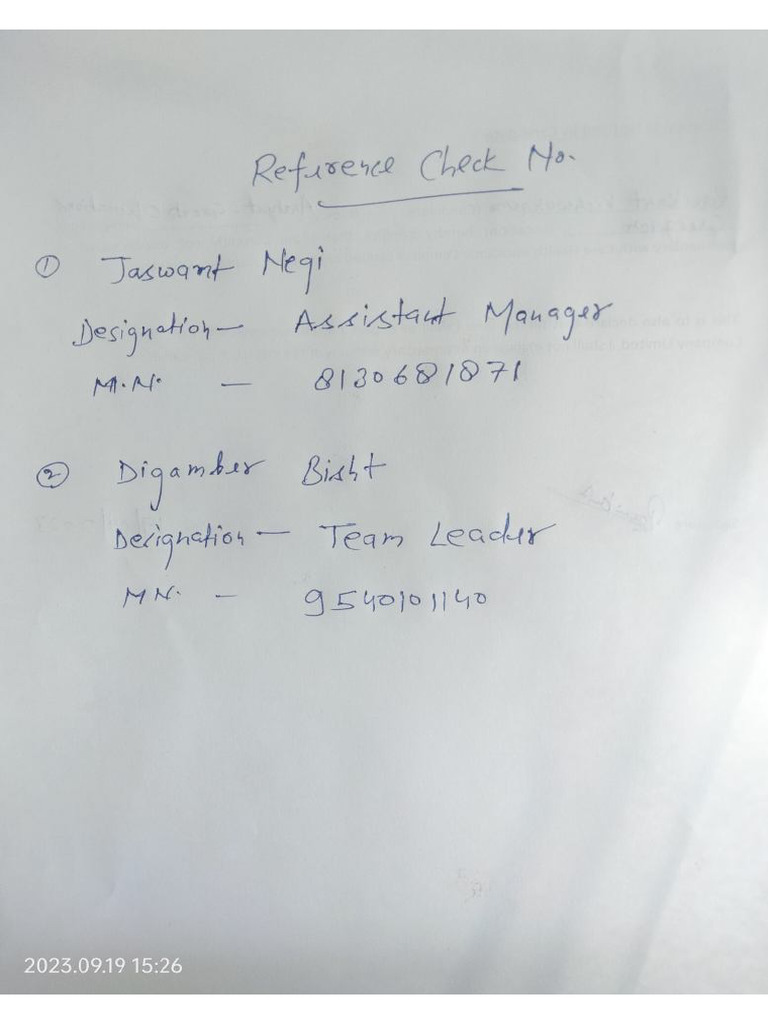 Reference Check No.
① Jaswant Negi
Designation - Assistant Manager
M.N. - 8130681871
② Digamber Bisht
Designation - Team Leader
M N. - 9540101140
2023.09.19 15:26